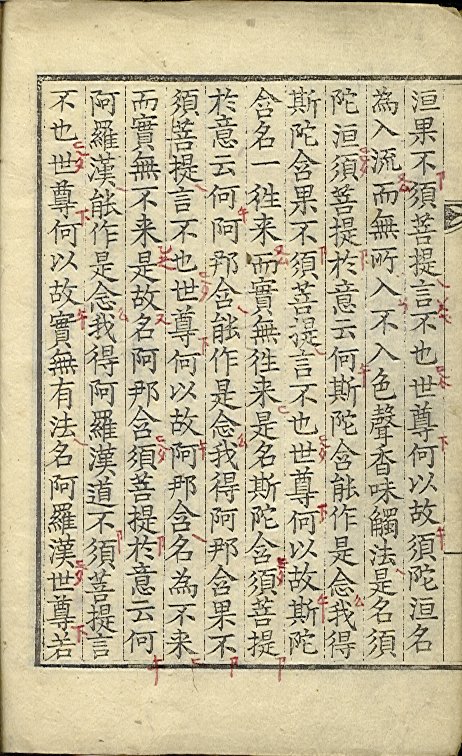 洹果不須菩提言不也世尊何以故須陀洹名
為入流而無所入不入色聲香味觸法是名須
陀洹須菩提於意云何斯陀含能作是念我得
斯陀含果不須菩提言不也世尊何以故斯陀
含名一徃来而實無徃来是名斯陀含須菩提
於意云何阿那含能作是念我得阿那含果不
須菩提言不也世尊何以故阿那含名為不来
而實無不来是故名阿那含須菩提於意云何
阿羅漢能作是念我得阿羅漢道不須菩提言
不也世尊何以故實無有法名阿羅漢世尊若